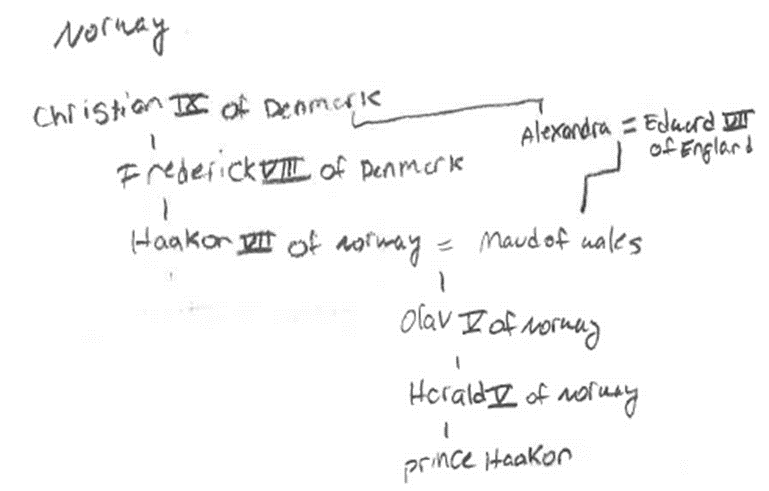 Norway
Christian IX of Denmark
Alexandra = Edward VII
of England
Frederick VIII of Denmark
Haakon VII of norway = Maud of wales
Olav V of norway
Harald V of norway
prince Haakon